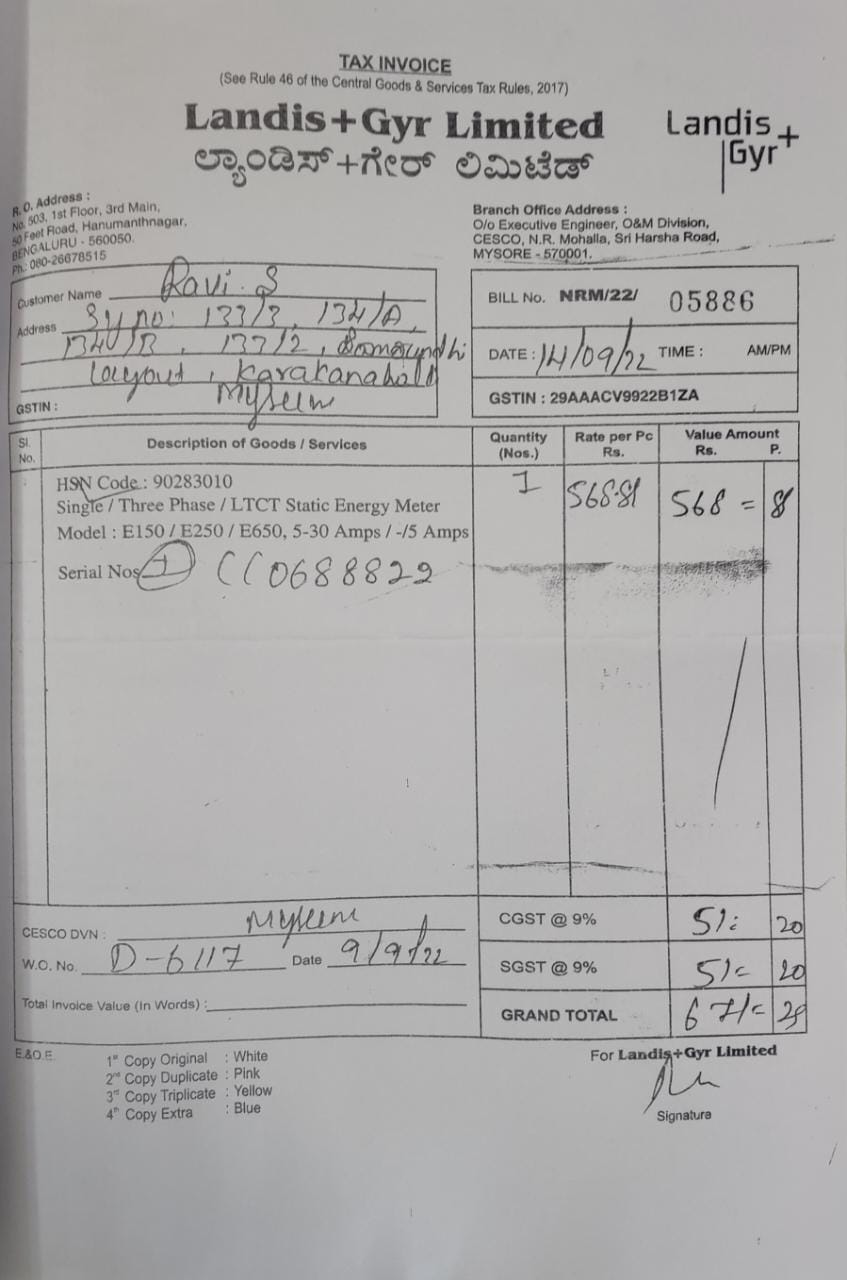 TAX INVOICE
(See Rule 46 of the Central Goods & Services Tax Rules, 2017)
Landis+Gyr Limited
ಲ್ಯಾಂಡಿಸ್+ಗೇರ್ ಲಿಮಿಟೆಡ್
Landis+
Gyr
R. O. Address :
No. 503, 1st Floor, 3rd Main,
50 Feet Road, Hanumanthnagar,
BENGALURU - 560050.
Ph.: 080-26678515
Branch Office Address :
O/o Executive Engineer, O&M Division,
CESCO, N.R. Mohalla, Sri Harsha Road,
MYSORE - 570001.
Customer Name Ravi. S
Address Sy no: 133/3, 134/A,
134/B, 133/2,
Layout,
GSTIN :
BILL No. NRM/22/ 05886
DATE : 14/09/22 TIME : AM/PM
GSTIN : 29AAACV9922B1ZA
Sl. No. Description of Goods / Services Quantity (Nos.) Rate per Pc Rs. Value Amount Rs. P.
HSN Code : 90283010 1 568.81 568 = 81
Single / Three Phase / LTCT Static Energy Meter
Model : E150 / E250 / E650, 5-30 Amps / -/5 Amps
Serial Nos 1 CC0688822
CESCO DVN :
W.O. No. D-6117 Date 9/9/22
Total Invoice Value (In Words) :
CGST @ 9% 51= 20
SGST @ 9% 51= 20
GRAND TOTAL 671=
E.&O.E.
1st Copy Original : White
2nd Copy Duplicate : Pink
3rd Copy Triplicate : Yellow
4th Copy Extra : Blue
For Landis+Gyr Limited
Signature